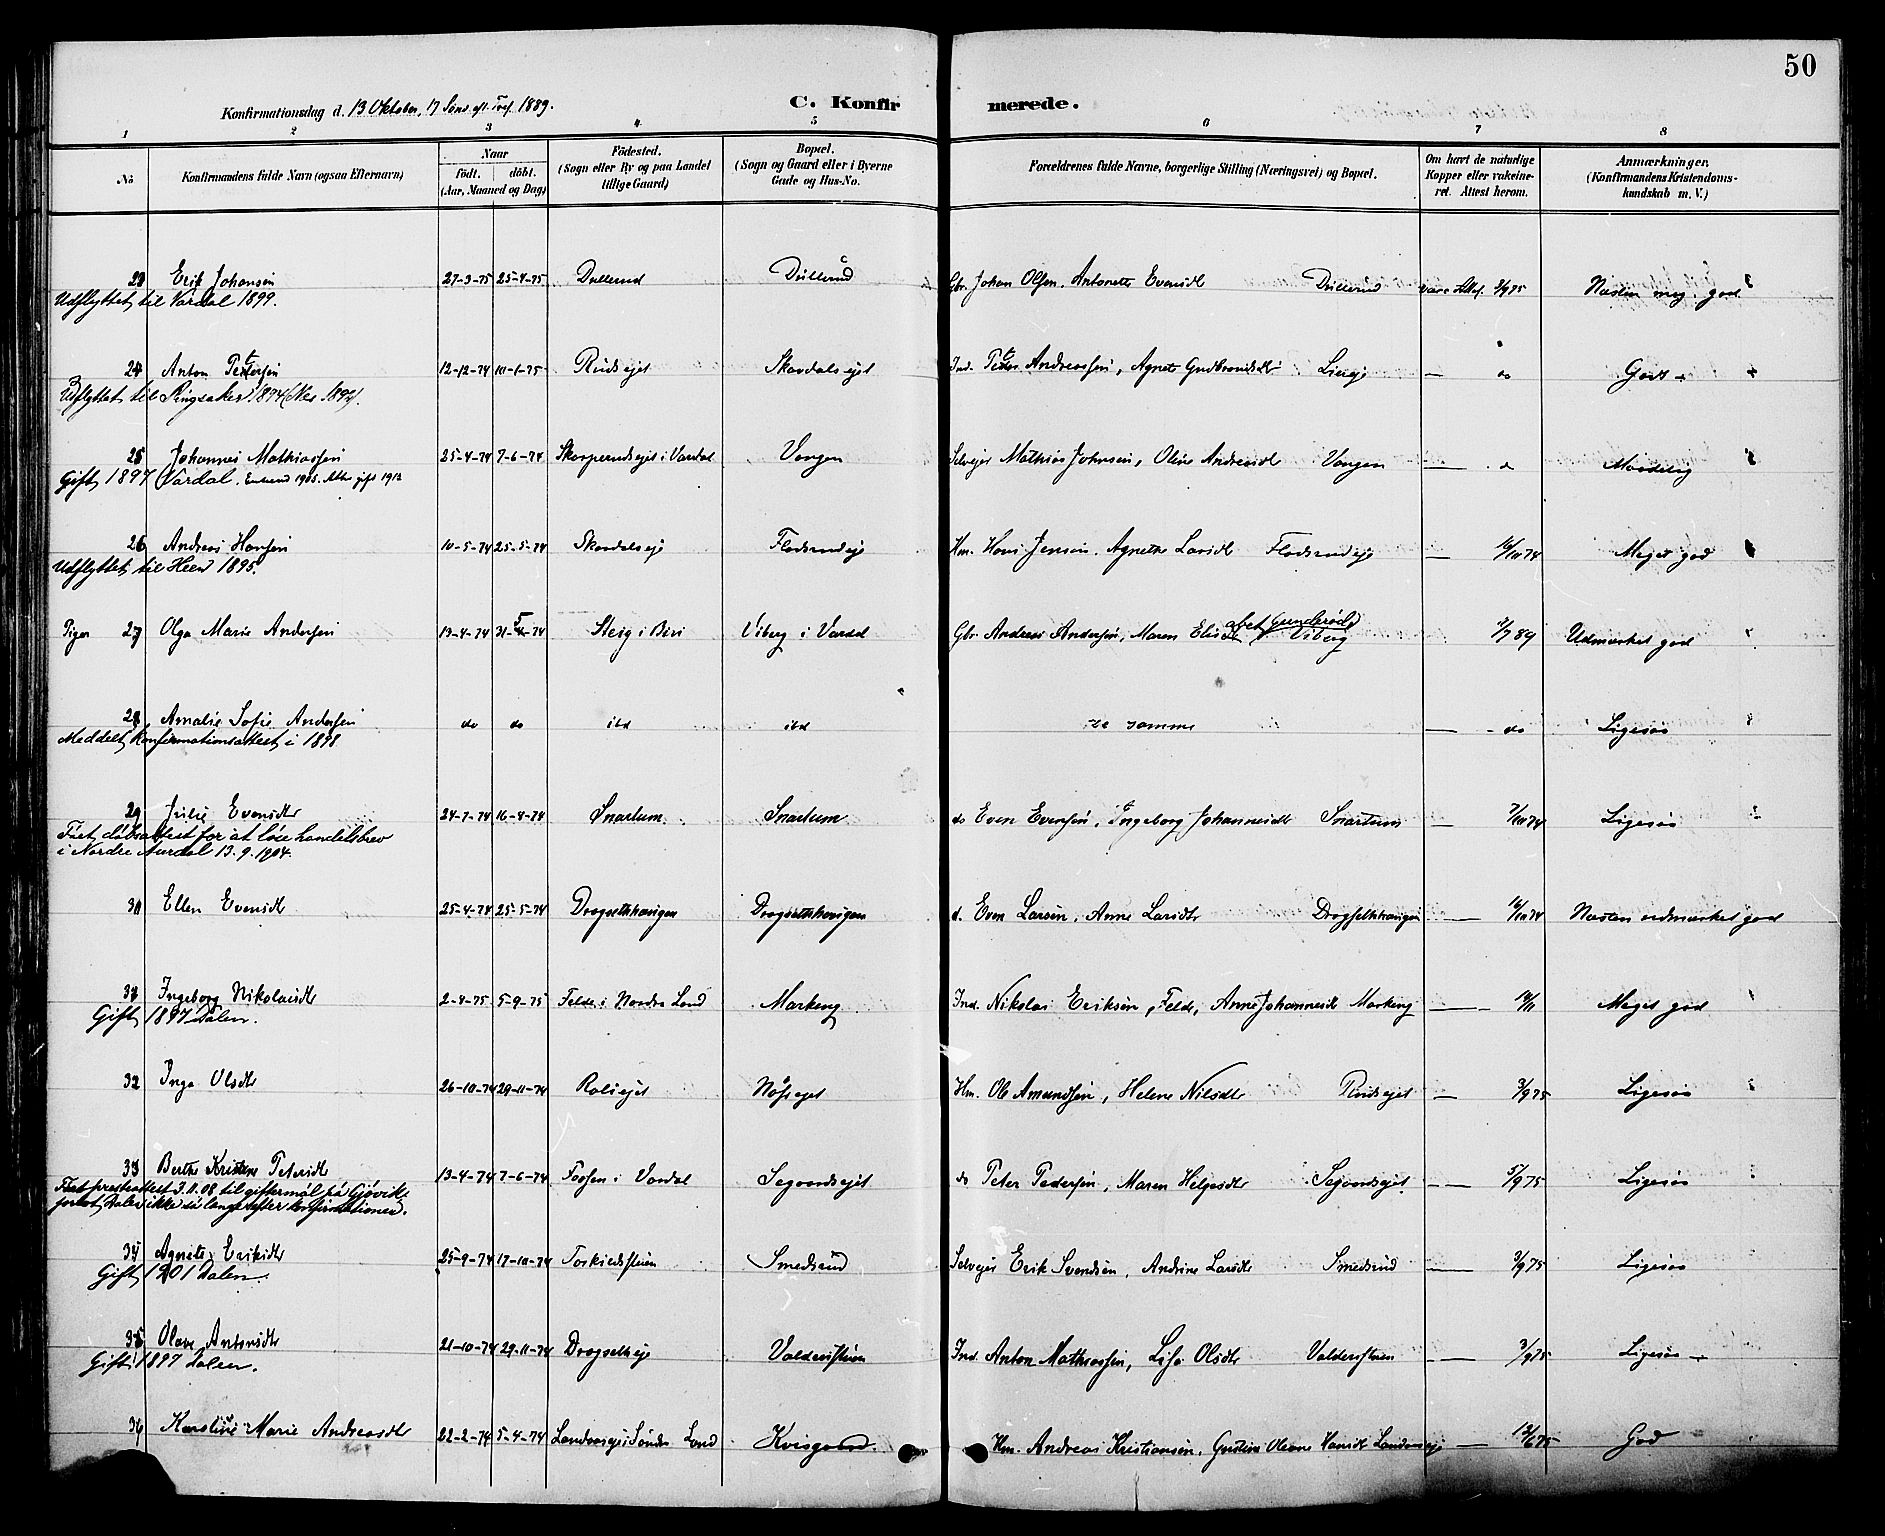 50
Konfirmationsdag d. 13 Oktober, 17 Sønd. eft. Tref. 1889. C. Konfirmerede.
1 2 3 4 5 6 7 8
No Konfirmandens fulde Navn (ogsaa Efternavn) Naar født. døbt. (Aar, Maaned og Dag) Fødested. (Sogn eller By og paa Landet tillige Gaard) Bopæl. (Sogn og Gaard eller i Byerne Gade og Hus-No. Forældrenes fulde Navne, borgerlige Stilling (Næringsvei) og Bopæl. Om havt de naturlige Kopper eller vakcineret. Attest herom. Anmærkninger. (Konfirmandens Kristendomskundskab m. V.)
23 Erik Johansen 27-3-75 25-4-75 Dullerud Dullerud Gbr. Johan Olsen. Antonette Evensdt Dullerud vacc Attest. 3/9 75 Næsten meg. god
Udflyttet til Vardal 1899.
24 Anton Pettersen 12-12-74 10-1-75 Rudsejet Skardalsejet Ind. Petter Andreassen, Agnete Gudbrandsdtr Liereje — do Godt
Udflyttet til Ringsaker 1894 (Nes 1897).
25 Johannes Mathiassen 25-4-74 7-6-74 Skonperudsejet i Vardal Vangen Selvejer Mathias Johnsen, Oline Andreasdt Vangen — do Maadelig
Gift 1897 Vardal. Enkemd 1905. Atter gift 1912
26 Andreas Hansen 10-5-74 25-5-74 Skardalseje Flodsrudeje Hm. Hans Jensen. Agnethe Larsdt Flodsrudeje — 16/10 74 Meget god
Udflyttet til Heen 1895.
Piger 27 Olga Marie Andersen 13-4-74 31-5-74 Steig i Biri Viberg i Vardal Gbr Andreas Andersen, Maren Elisdt Viberg — 89 Udmærket god
28 Amalie Sofie Andersen do do ibd ibd de samme — do Ligesaa
Meddelt Konfirmationsattest i 1898
29 Julie Evensdtr 24-7-74 16-4-74 Snartum Snartum do Even Evensen, Ingeborg Johannesdt Snartum — 7/10 74 Ligesaa
Fået dåbsattest for at løse handelsbrev
i Nordre Aurdal 13.9.1904.
30 Ellen Evensdtr 25-4-74 25-5-74 Drogsethhaugen Drogsethhaugen d. Even Larsen, Anne Larsdtr Drogsethhaugen — 16/10 74 Næsten udmærket god
31 Ingeborg Nikolaisdtr 2-8-75 5-9-75 Felde i Nordre Land Markeng Ind. Nikolai Eriksen, Felde, Anne Johannesdt Markeng — 14/11 Meget god
Gift 1897 Dalen.
32 Inga Olsdtr 26-10-74 29-11-74 Rolsejet Nøssejet Hm. Ole Amundsen, Helene Nilsdtr Rudsejet — 3/9 75 Ligesaa
33 Berthe Kristine Petersdtr 13-4-74 7-6-74 Fossen i Vardal Segaardsejet do Peter Pedersen, Maren Helgesdtr Segaardsejet — 5/9 75 Ligesaa
Fået presteattest 3.11.08 til giftermål på Gjøvik.
forlot Dalen ikke så længe efter konfirmationen.
34 Agnete Eriksdtr 25-9-74 17-10-74 Smedsrud Selvejer Erik Svendsen, Andrine Larsdtr Smedsrud — 3/9 75 Ligesaa
Gift 1901 Dalen.
35 Olave Antonsdtr 21-10-74 29-11-74 Drogsetheje Valdersstuen Ind. Anton Mathiassen, Lisa Olsdtr Valdersstuen — 3/9 75 Ligesaa
Gift 1897 Dalen.
36 Karoline Marie Andreasdtr 22-2-74 5-4-74 Søndre Land Kvisgaard Hm. Andreas Kristiansen, Gustine Oleane Hansdt — God